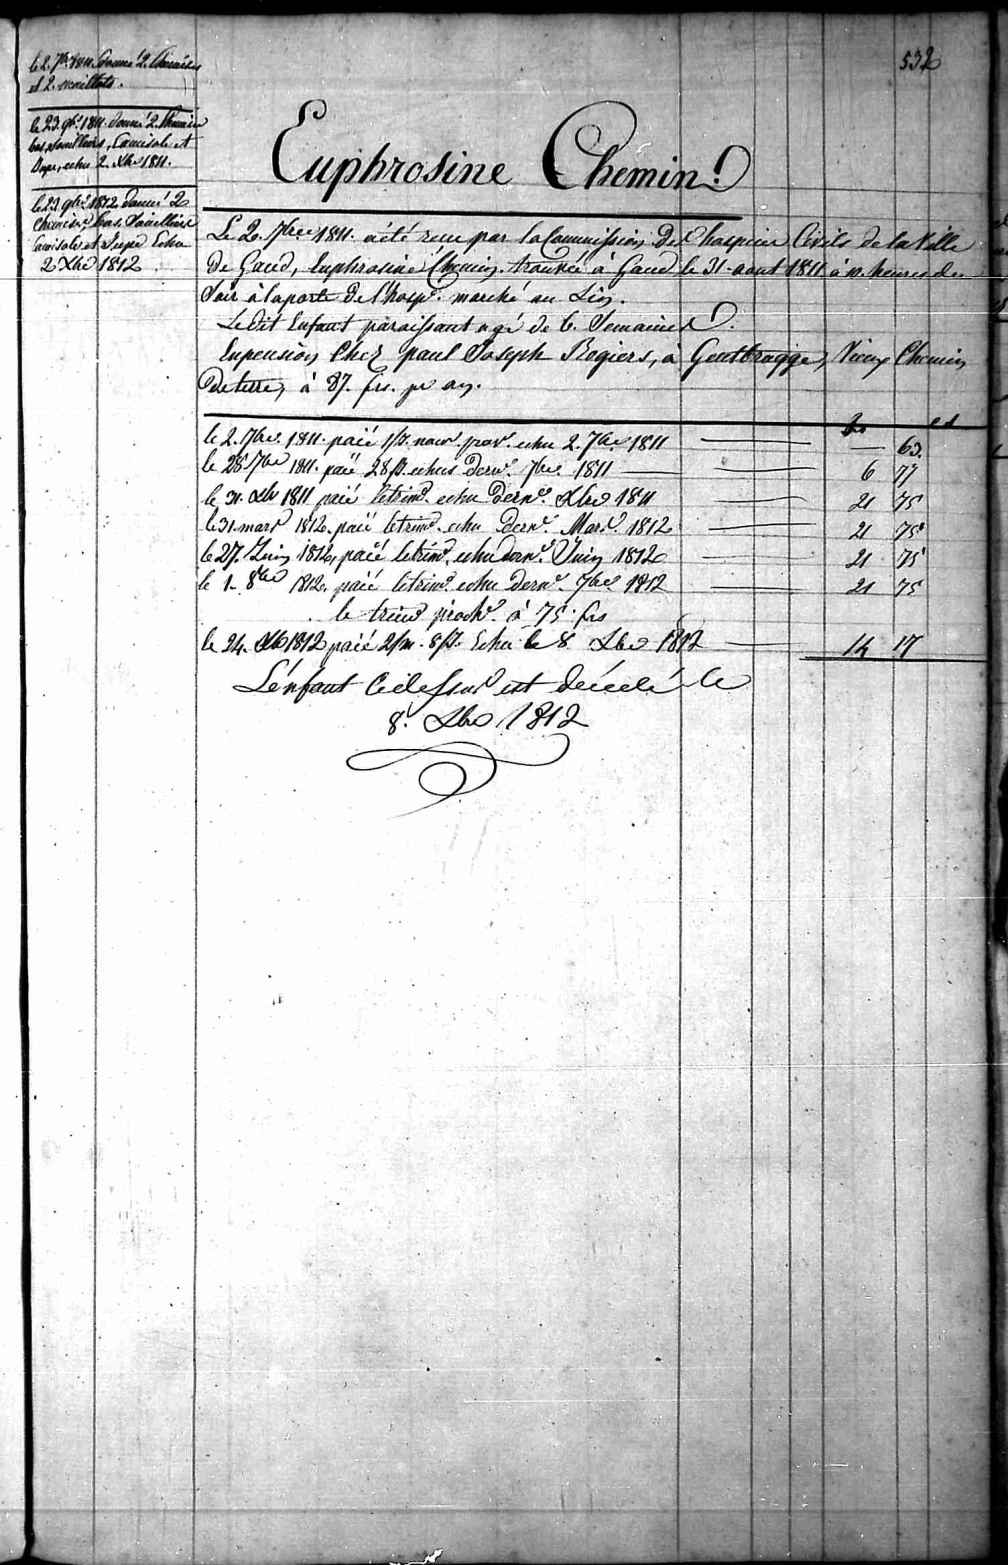 532
le 2. 7bre 1811. donné 2. Chemises
et 2. maillots.
le 23. 9bre 1811. donné 2. Chemises
bas, Camisole et
Jupe, echu 2. Xbre 1811.
le 23. 9bre 1812 donné 2
Chemises bas,
Camisole et Jupe Echu
2 Xbre 1812
Euphrosine Chemin.
Le 2. 7bre 1811. a été reçu par la Commission Des hospices Civils de la Ville
De Gand, Euphrosine Chemin. trouvée à Gand le 31. aout 1811 à 10. heures du
Soir à la porte De l'hosp. marché au Lin.
Ledit Enfant paraissant agé de 6. Semaines.
En pension Chez paul Joseph Rogiers, à Gentbrugge, Vieux Chemin
De terre, à 87. frs. pr an.
frs cs
le 2. 7bre. 1811. paié echu 2. 7bre. 1811 — 63.
le 28 7bre 1811. paié 28 echus dern. 7bre. 1811 6 77
le 31. Xbre 1811 paié le trim. echu dern. Xbre 1811 21 75
le 31. mars 1812, paié le trim. echu dern. Mars. 1812 21 75
le 27. Juin 1812, paié le trim. echu dern. Juin 1812 21 75
le 1. 8bre 1812, paié le trim. echu dern. 7bre 1812 21 75
le trim. proch. à 75. frs
le 24. Xbre 1812 paié 2/m. 8 Echu le 8 Xbre 1812 14 17
L'énfant Cidessus est décedé le
8. Xbre 1812